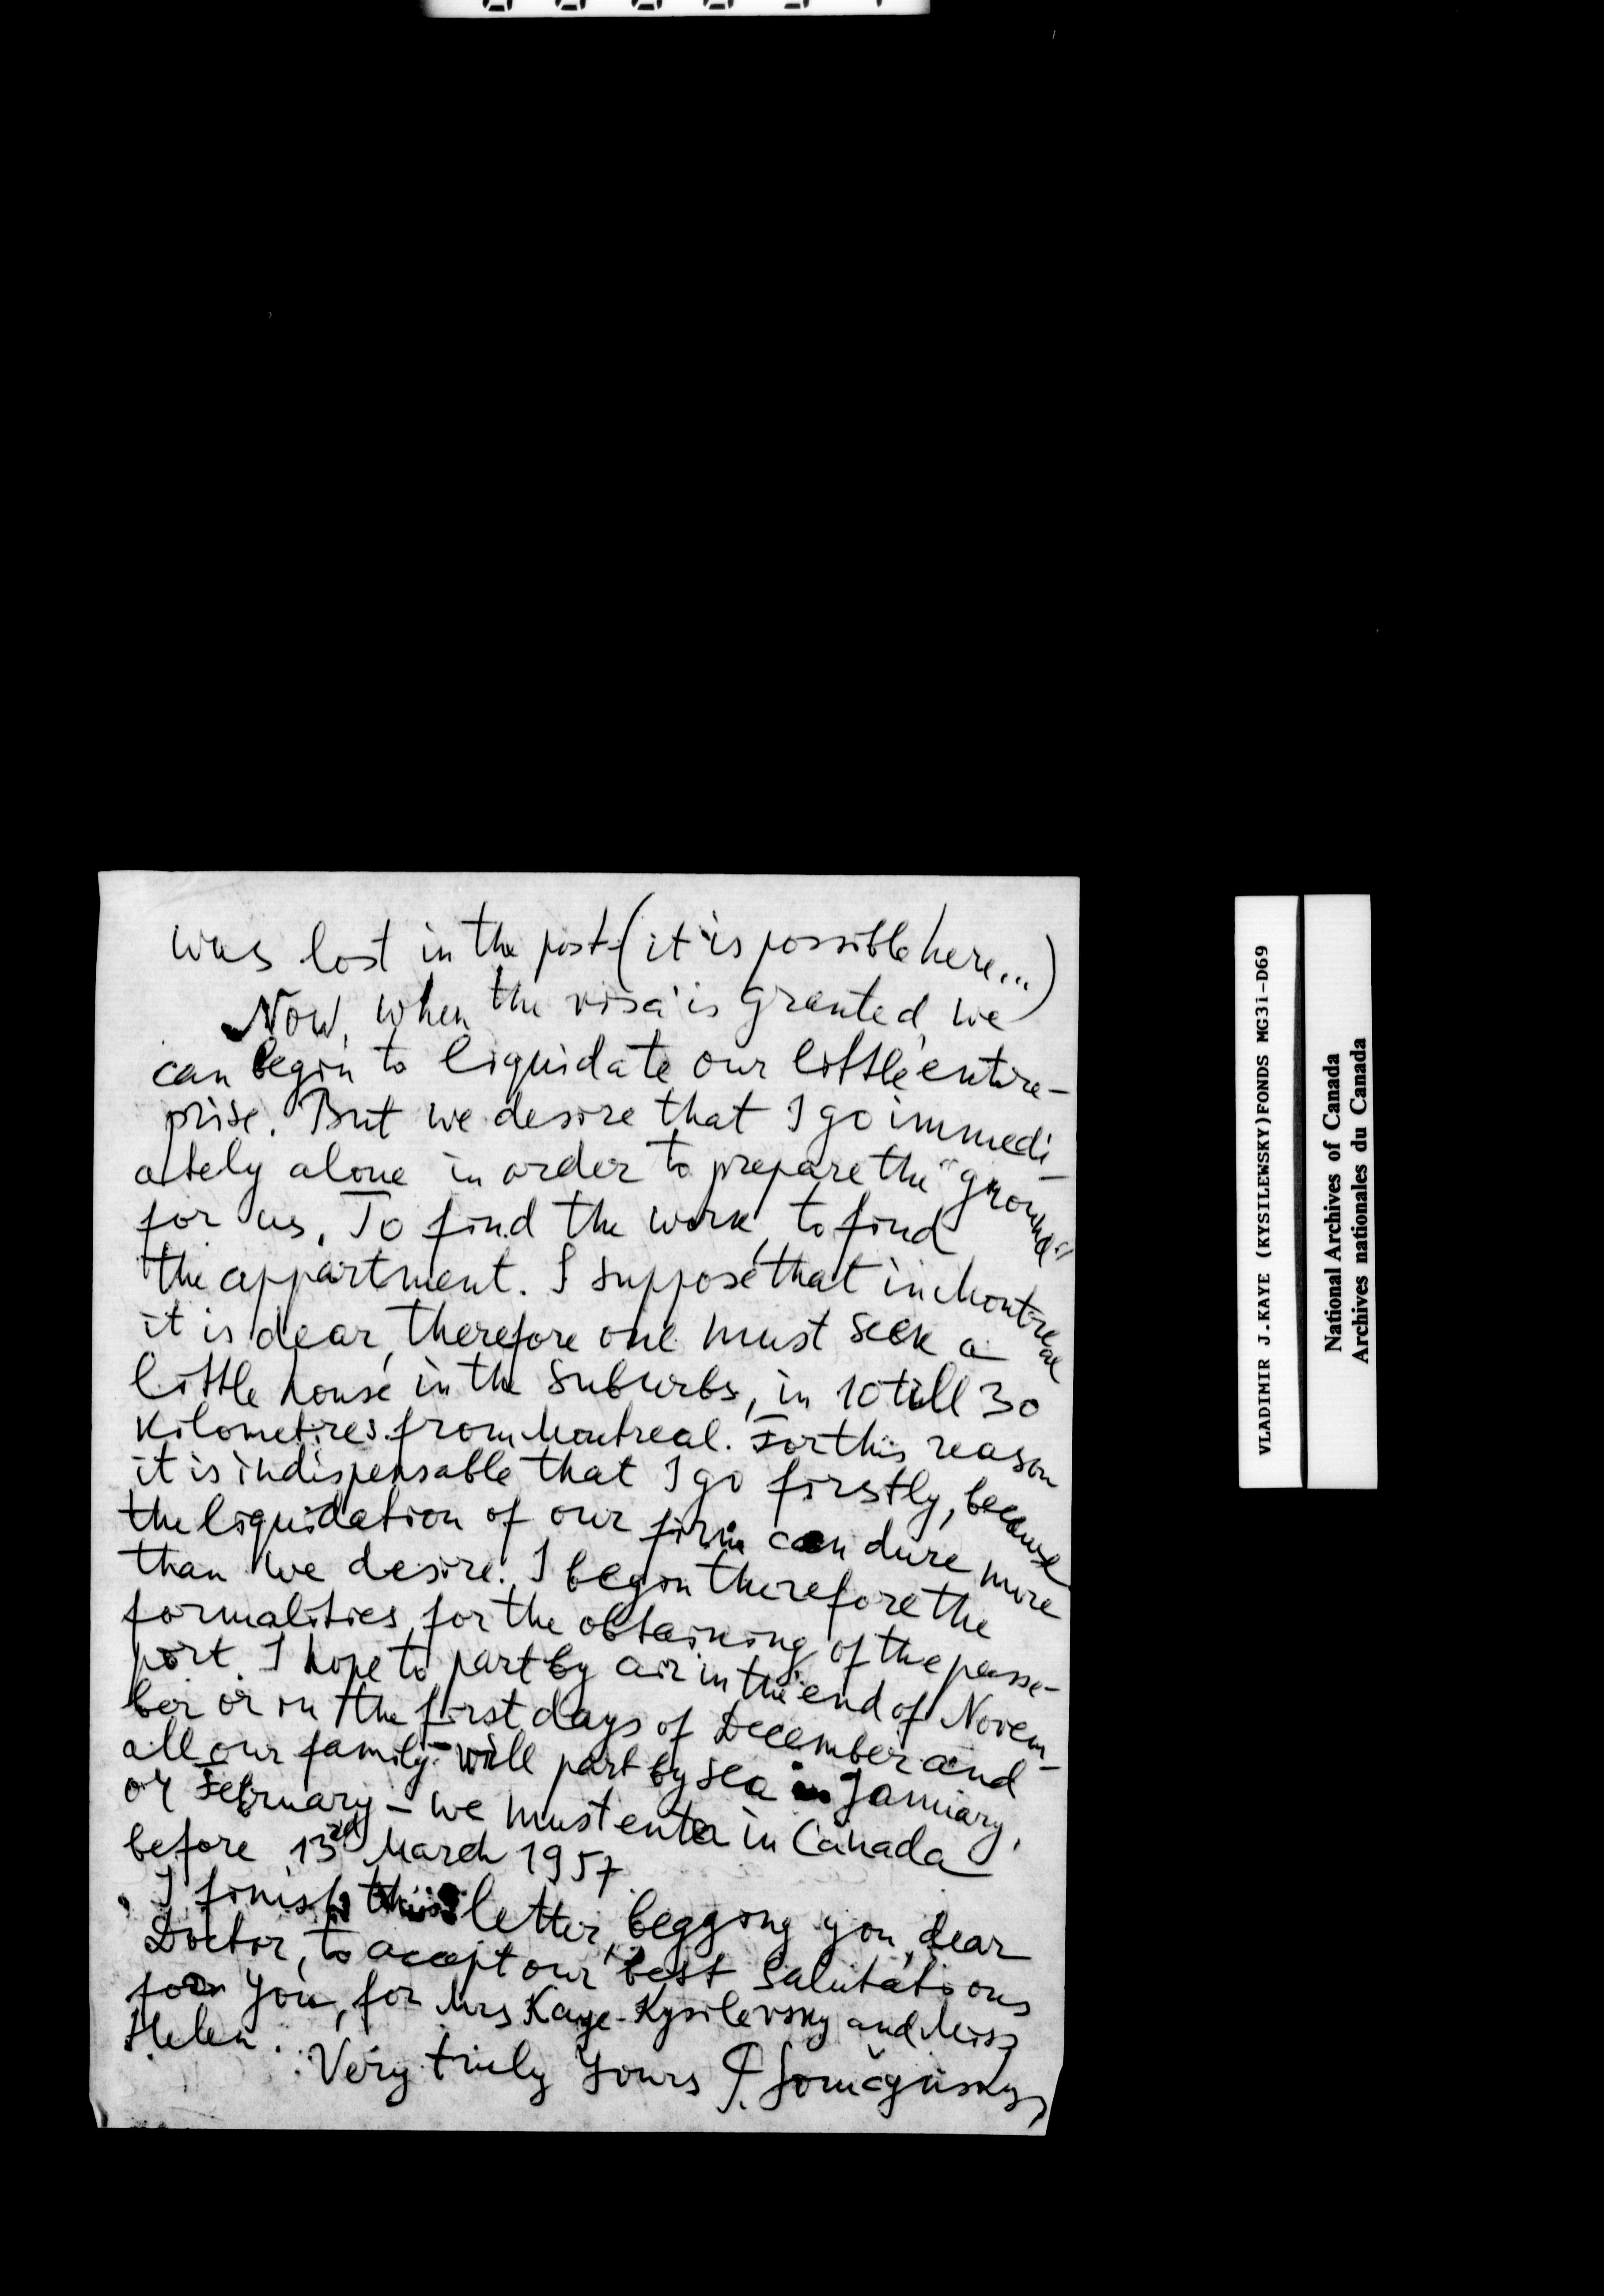 was lost in the post (it is possible here...)
Now, when the visa is granted, we
can begin to liquidate our little entre-
prise. But we desire that I go immedi-
ately alone in order to prepare the "ground"
for us. To find the work, to find
the appartment. I suppose that in Montreal
it is dear, therefore one must seek a
little house in the suburbs, in 10 till 30
kilometres from Montreal. For this reason
it is indispensable that I go firstly, because
the liquidation of our firm can dure more
than we desire. I begin therefore the
formalities for the obtaining of the passe-
port. I hope to part by air in the end of Novem-
ber or in the first days of December and
all our family will part by sea in January,
or February - we must enter in Canada
before 13rd March 1957.
I finish this letter, begging you, dear
Doctor, to accept our best salutations
for You, for Mrs Kaye-Kysilevsky and Miss
Helen.
Very truly Yours
VLADIMIR J.KAYE (KYSILEWSKY)FONDS MG31-D69
National Archives of Canada
Archives nationales du Canada